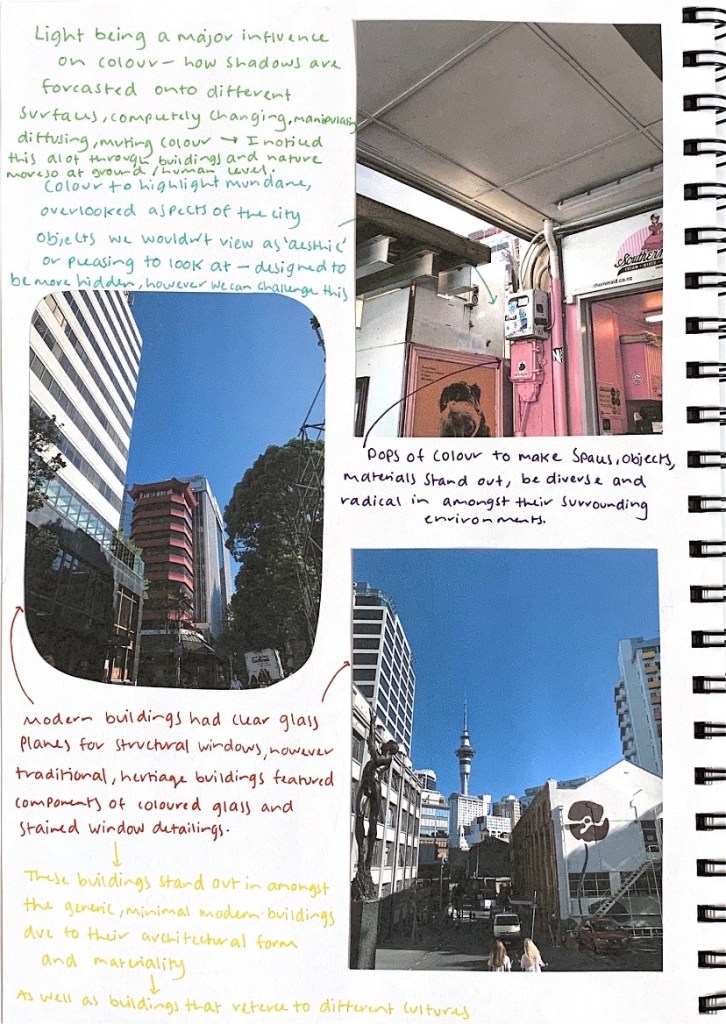 Light being a major influence
on colour – how shadows are
forcasted onto different
surfaces, completely changing, manipulating
diffusing, muting colour → I noticed
this alot through buildings and nature
moreso at ground/human level.
Colour to highlight mundane,
overlooked aspects of the city
objects we wouldn't view as 'aesthic'
or pleasing to look at – designed to
be more hidden, however we can challenge this
Southern
mermaid.co.nz
Pops of colour to make spaces, objects,
materials stand out, be diverse and
radical in amongst their surrounding
environments.
Modern buildings had clear glass
planes for structural windows, however
traditional, hertiage buildings featured
components of coloured glass and
stained window detailings.
These buildings stand out in amongst
the generic, minimal modern buildings
due to their architectural form
and materiality
As well as buildings that referce to different cultures